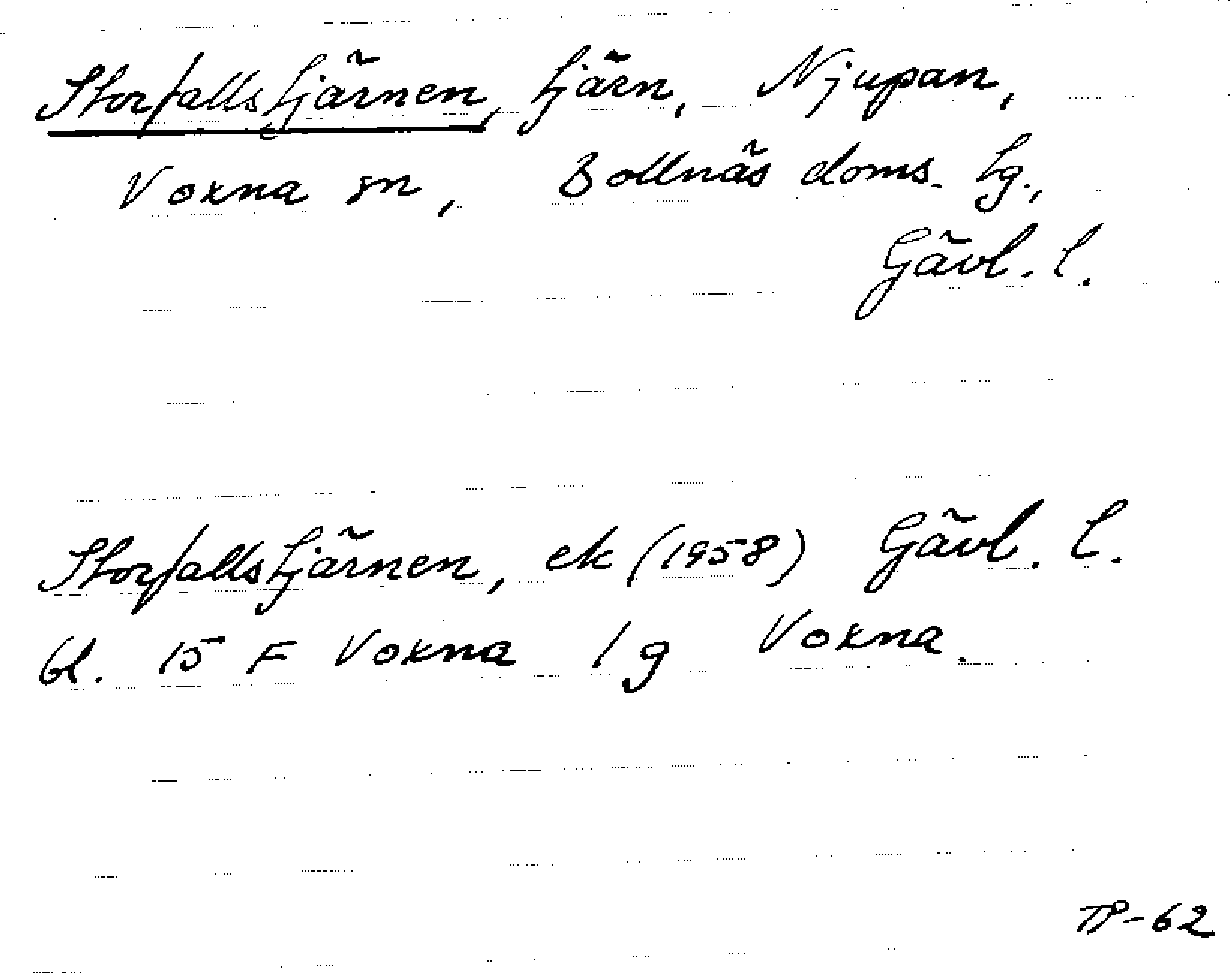 Storfallstjärnen, tjärn, Njupan,
Voxna sn, Bollnäs doms. tg.,
Gävl. l.
Storfallstjärnen, ek (1958) Gävl. l.
bl. 15 F Voxna 1g Voxna.
TP-62